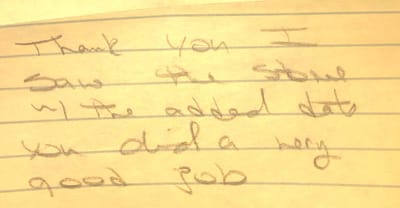 Thank you I
saw the stone
w/ the added date
you did a very
good job